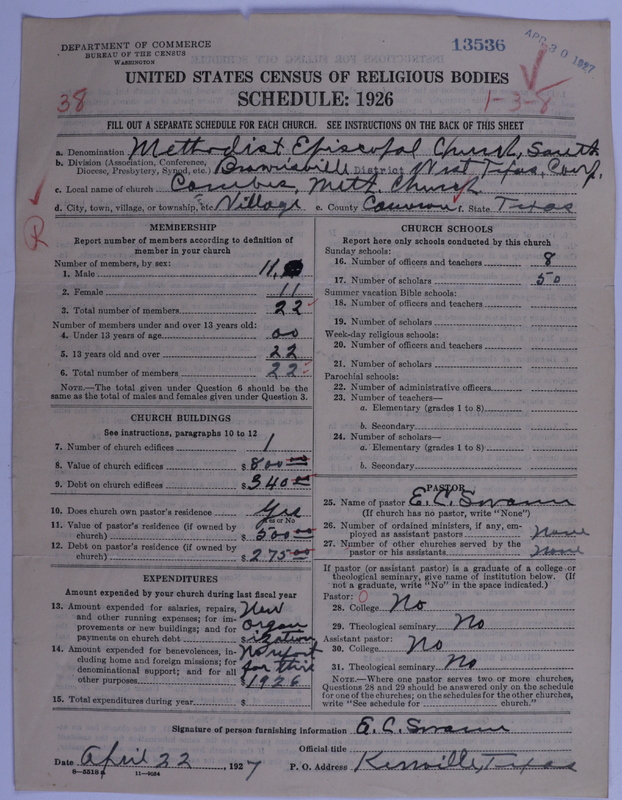 DEPARTMENT OF COMMERCE
BUREAU OF THE CENSUS
WASHINGTON
13536
APR 30 1927
UNITED STATES CENSUS OF RELIGIOUS BODIES
SCHEDULE: 1926
38
1-3-8
FILL OUT A SEPARATE SCHEDULE FOR EACH CHURCH. SEE INSTRUCTIONS ON THE BACK OF THIS SHEET
a. Denomination Methodist Episcopal Church, South
b. Division (Association, Conference, Diocese, Presbytery, Synod, etc.) Brownsville District West Texas, Conf.
c. Local name of church Combes, Meth. Church
d. City, town, village, or township, etc. Village e. County Cameron f. State Texas
R
MEMBERSHIP
Report number of members according to definition of
member in your church
Number of members, by sex:
1. Male 11
2. Female 11
3. Total number of members 22
Number of members under and over 13 years old:
4. Under 13 years of age 00
5. 13 years old and over 22
6. Total number of members 22
NOTE.—The total given under Question 6 should be the
same as the total of males and females given under Question 3.
CHURCH BUILDINGS
See instructions, paragraphs 10 to 12
7. Number of church edifices 1
8. Value of church edifices $800 00
9. Debt on church edifices $340 00
10. Does church own pastor's residence Yes
Yes or No
11. Value of pastor's residence (if owned by
church) $500 00
12. Debt on pastor's residence (if owned by
church) $275 00
EXPENDITURES
Amount expended by your church during last fiscal year
13. Amount expended for salaries, repairs, New
and other running expenses; for im-
provements or new buildings; and for organ
payments on church debt $ ization
14. Amount expended for benevolences, in- No report
cluding home and foreign missions; for
denominational support; and for all for this
other purposes $ 1926
15. Total expenditures during year $
CHURCH SCHOOLS
Report here only schools conducted by this church
Sunday schools:
16. Number of officers and teachers 8
17. Number of scholars 50
Summer vacation Bible schools:
18. Number of officers and teachers
19. Number of scholars
Week-day religious schools:
20. Number of officers and teachers
21. Number of scholars
Parochial schools:
22. Number of administrative officers
23. Number of teachers—
a. Elementary (grades 1 to 8)
b. Secondary
24. Number of scholars—
a. Elementary (grades 1 to 8)
b. Secondary
PASTOR
25. Name of pastor E. C. Swann
(If church has no pastor, write "None")
26. Number of ordained ministers, if any, em-
ployed as assistant pastors None
27. Number of other churches served by the
pastor or his assistants None
If pastor (or assistant pastor) is a graduate of a college or
theological seminary, give name of institution below. (If
not a graduate, write "No" in the space indicated.)
Pastor: 0
28. College No
29. Theological seminary No
Assistant pastor:
30. College No
31. Theological seminary No
NOTE.—Where one pastor serves two or more churches,
Questions 28 and 29 should be answered only on the schedule
for one of the churches; on the schedules for the other churches,
write "See schedule for church."
Signature of person furnishing information E. C. Swann
Official title
Date April 22, 1927 P. O. Address Kerrville, Texas
8—5518a 11—9084